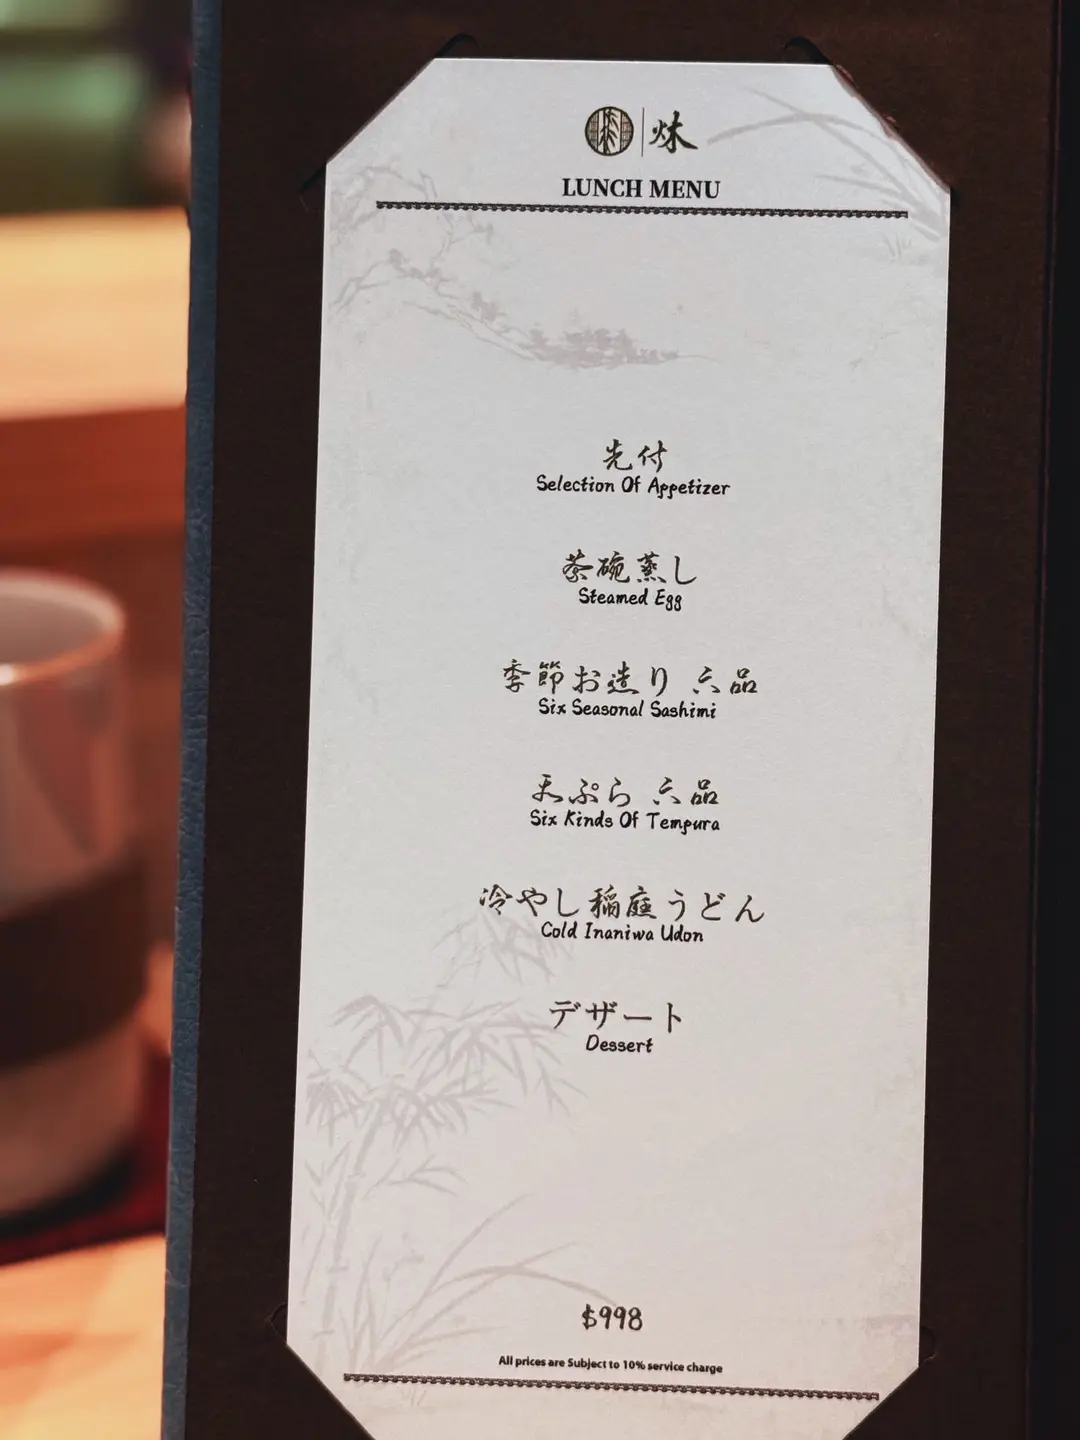 LUNCH MENU
先付
Selection Of Appetizer
茶碗蒸し
Steamed Egg
季節お造り 六品
Six Seasonal Sashimi
天ぷら 六品
Six Kinds Of Tempura
冷やし稲庭うどん
Cold Inaniwa Udon
デザート
Dessert
$998
All prices are Subject to 10% service charge